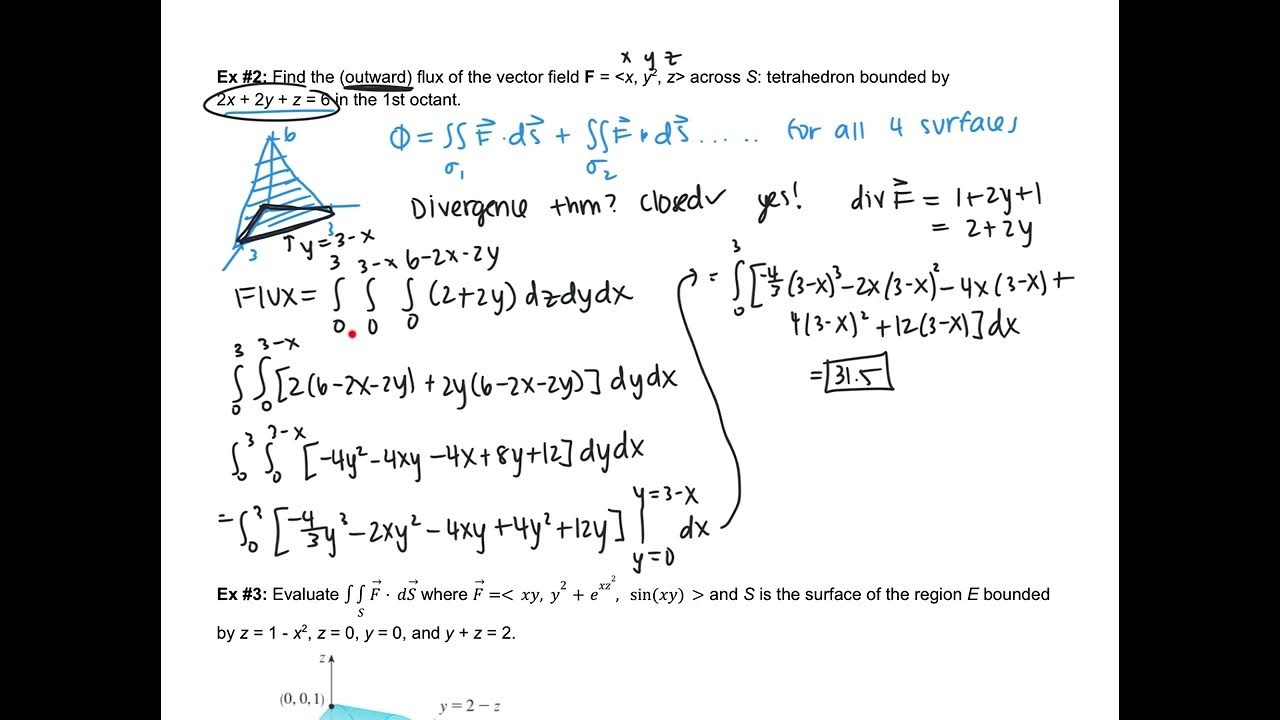 x y z
Ex #2: Find the (outward) flux of the vector field F = <x, y², z> across S: tetrahedron bounded by
2x + 2y + z = 6 in the 1st octant.
6
3
3
↑ y = 3 - x
Φ = ∬ F⃗ · dS⃗ + ∬ F⃗ · dS⃗ ..... for all 4 surfaces
σ₁ σ₂
Divergence thm? closed ✓ yes! div F⃗ = 1+2y+1
= 2+2y
Flux = ∫₀³ ∫₀³⁻ˣ ∫₀⁶⁻²ˣ⁻²ʸ (2+2y) dzdydx
∫₀³ ∫₀³⁻ˣ [2(6-2x-2y) + 2y(6-2x-2y)] dydx
∫₀³ ∫₀³⁻ˣ [-4y²-4xy-4x+8y+12] dydx
= ∫₀³ [-4/3 y³ - 2xy² - 4xy + 4y² + 12y] | y=3-x y=0 dx
= ∫₀³ [-4/3 (3-x)³ - 2x(3-x)² - 4x(3-x) +
4(3-x)² + 12(3-x)] dx
= 31.5
Ex #3: Evaluate ∫∫ F⃗ · dS⃗ where F⃗ =< xy, y² + e^{xz²}, sin(xy) > and S is the surface of the region E bounded
S
by z = 1 - x², z = 0, y = 0, and y + z = 2.
z
(0, 0, 1)
y = 2 − z